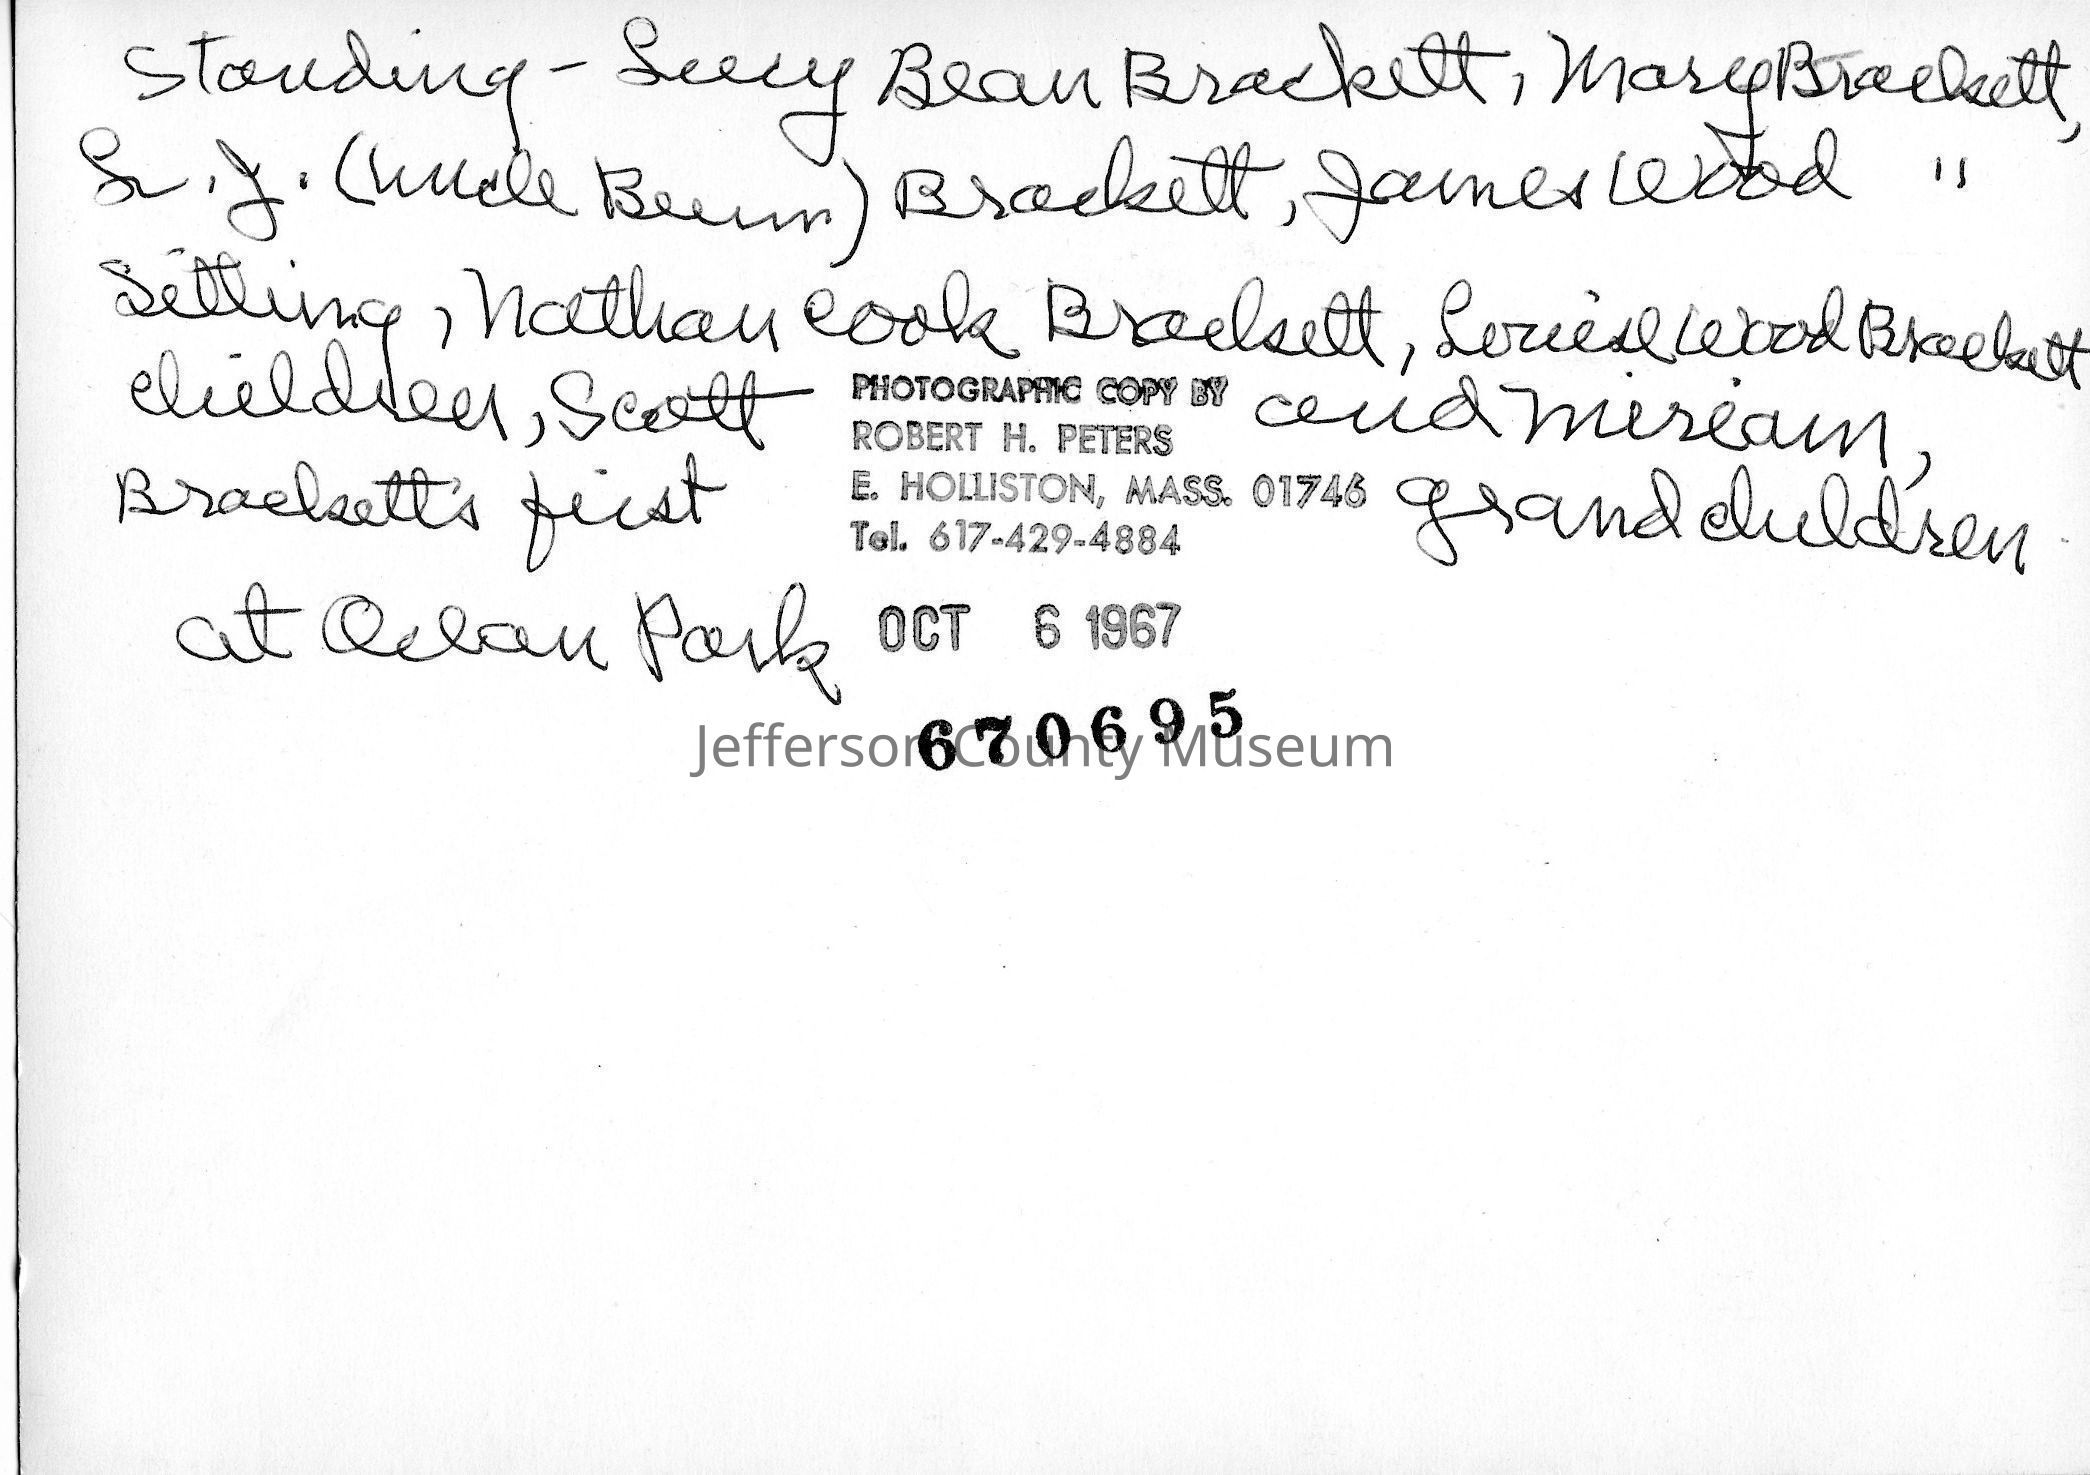 Standing - Lucy Bean Brackett, Mary Brackett,
L. J. (Uncle Benn) Brackett, James Wood "
Sitting, Nathan Cook Brackett, Louise Wood Brackett
children, Scott and Miriam,
Brackett's first grandchildren
at Ocean Park
PHOTOGRAPHIC COPY BY
ROBERT H. PETERS
E. HOLLISTON, MASS. 01746
Tel. 617-429-4884
OCT 6 1967
670695
Jefferson County Museum